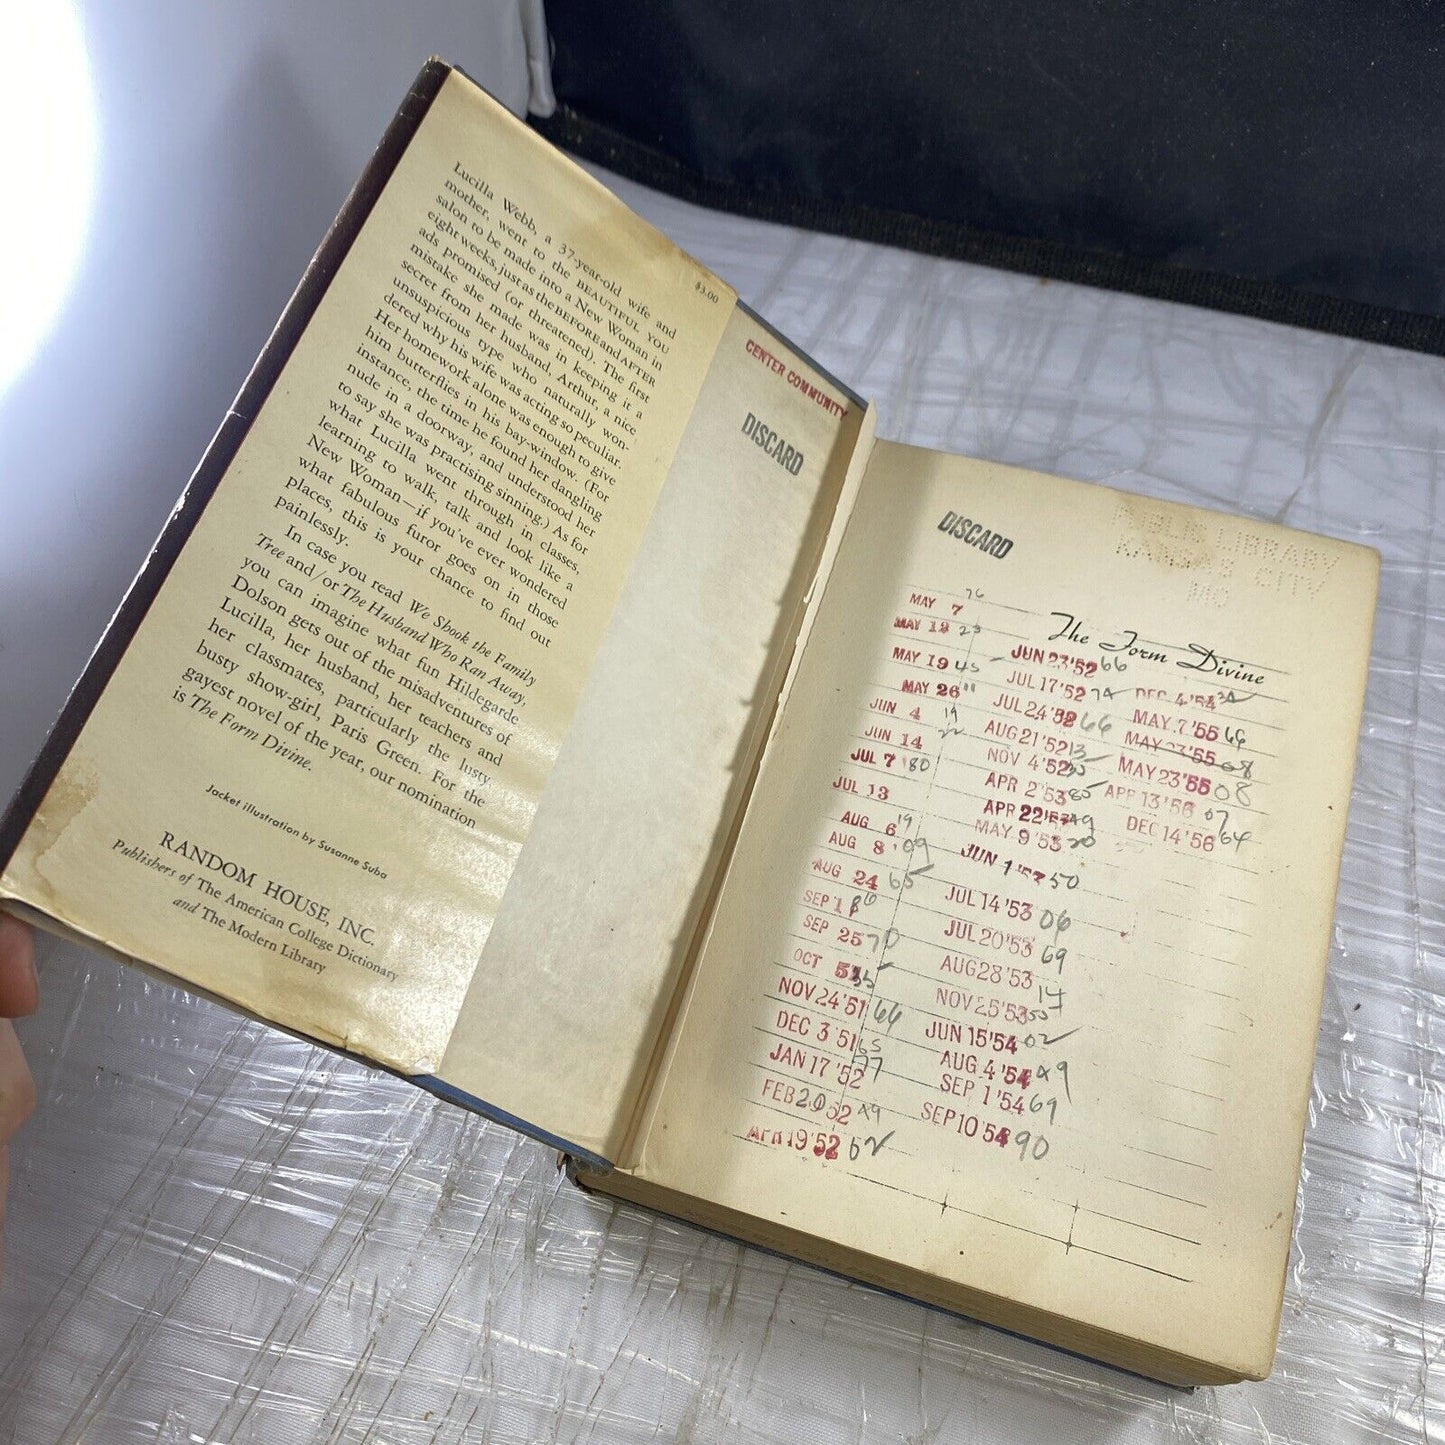 $3.00
Lucilla Webb, a 37-year-old wife and
mother, went to the BEAUTIFUL YOU
salon to be made into a New Woman in
eight weeks, just as the BEFORE and AFTER
ads promised (or threatened). The first
mistake she made was in keeping it a
secret from her husband, Arthur, a nice
unsuspicious type who naturally won-
dered why his wife was acting so peculiar.
Her homework alone was enough to give
him butterflies in his bay-window. (For
instance, the time he found her dangling
nude in a doorway, and understood her
to say she was practising sinning.) As for
what Lucilla went through in classes,
learning to walk, talk and look like a
New Woman—if you've ever wondered
what fabulous furor goes on in those
places, this is your chance to find out
painlessly.
In case you read We Shook the Family
Tree and/or The Husband Who Ran Away,
you can imagine what fun Hildegarde
Dolson gets out of the misadventures of
Lucilla, her husband, her teachers and
her classmates, particularly the lusty
busty show-girl, Paris Green. For the
gayest novel of the year, our nomination
is The Form Divine.
Jacket illustration by Susanne Suba
RANDOM HOUSE, INC.
Publishers of The American College Dictionary
and The Modern Library
CENTER COMMUNITY
DISCARD
DISCARD
LIBRARY
KANSAS CITY
MO
The Form Divine
MAY 7 76
MAY 12 23
MAY 19 45
MAY 26 11
JUN 4 19
JUN 14 22
JUL 7 80
JUL 13
AUG 6 19
AUG 8 09
AUG 24 65
SEP 1
SEP 25 70
OCT
NOV 24 '51 66
DEC 3 '51 65
JAN 17 '52 77
FEB 20 52 49
APR 19 '52 62
JUN 23 '52 66
JUL 17 '52 74
JUL 24 '52 66
AUG 21 '52 13
NOV 4 '52
APR 2 '53 85
APR 22 49
MAY 9 '53 20
JUN 1 50
JUL 14 '53 06
JUL 20 '53 69
AUG 28 '53 14
NOV 25 '53
JUN 15 '54 02
AUG 4 '54 49
SEP 1 '54 69
SEP 10 54 90
DEC 4 '54
MAY 7 '55 66
MAY 23 '55 68
MAY 23 '55 08
APR 13 '56 07
DEC 14 '56 64